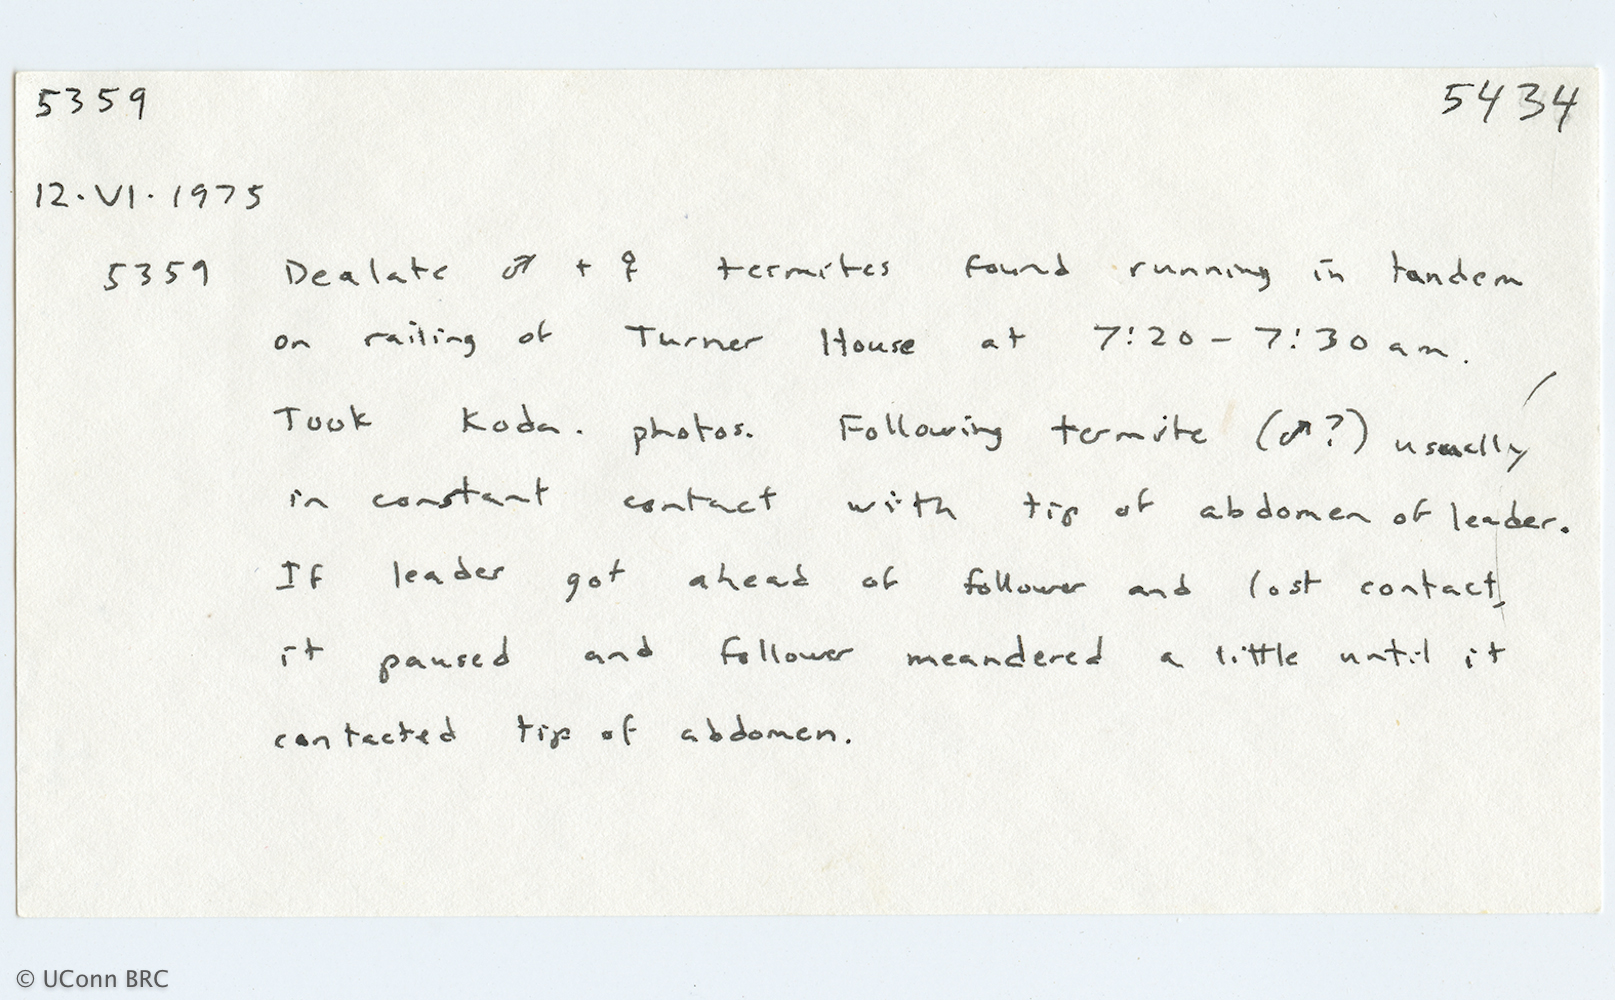 5359 5434
12·VI·1975
5359 Dealate ♂ + ♀ termites found running in tandem
on railing of Turner House at 7:20 – 7:30 am.
Took Koda. photos. Following termite (♂?) usually
in constant contact with tip of abdomen of leader.
If leader got ahead of follower and lost contact,
it paused and follower meandered a little until it
contacted tip of abdomen.
© UConn BRC